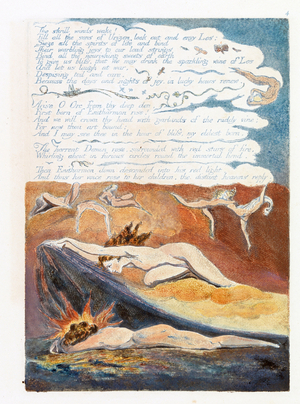 The shrill winds wake
Till all the sons of Urizen look out and envy Los:
Seize all the spirits of life and bind
Their warbling joys to our loud strings
Bind all the nourishing sweets of earth
To give us bliss, that we may drink the sparkling wine of Los
And let us laugh at war,
Despising toil and care,
Because the days and nights of joy, in lucky hours renew.
Arise O Orc from thy deep den,
First born of Enitharmon rise!
And we will crown thy head with garlands of the ruddy vine;
For now thou art bound;
And I may see thee in the hour of bliss, my eldest born.
The horrent Demon rose, surrounded with red stars of fire,
Whirling about in furious circles round the immortal fiend.
Then Enitharmon down descended into his red light,
And thus her voice rose to her children, the distant heavens reply.